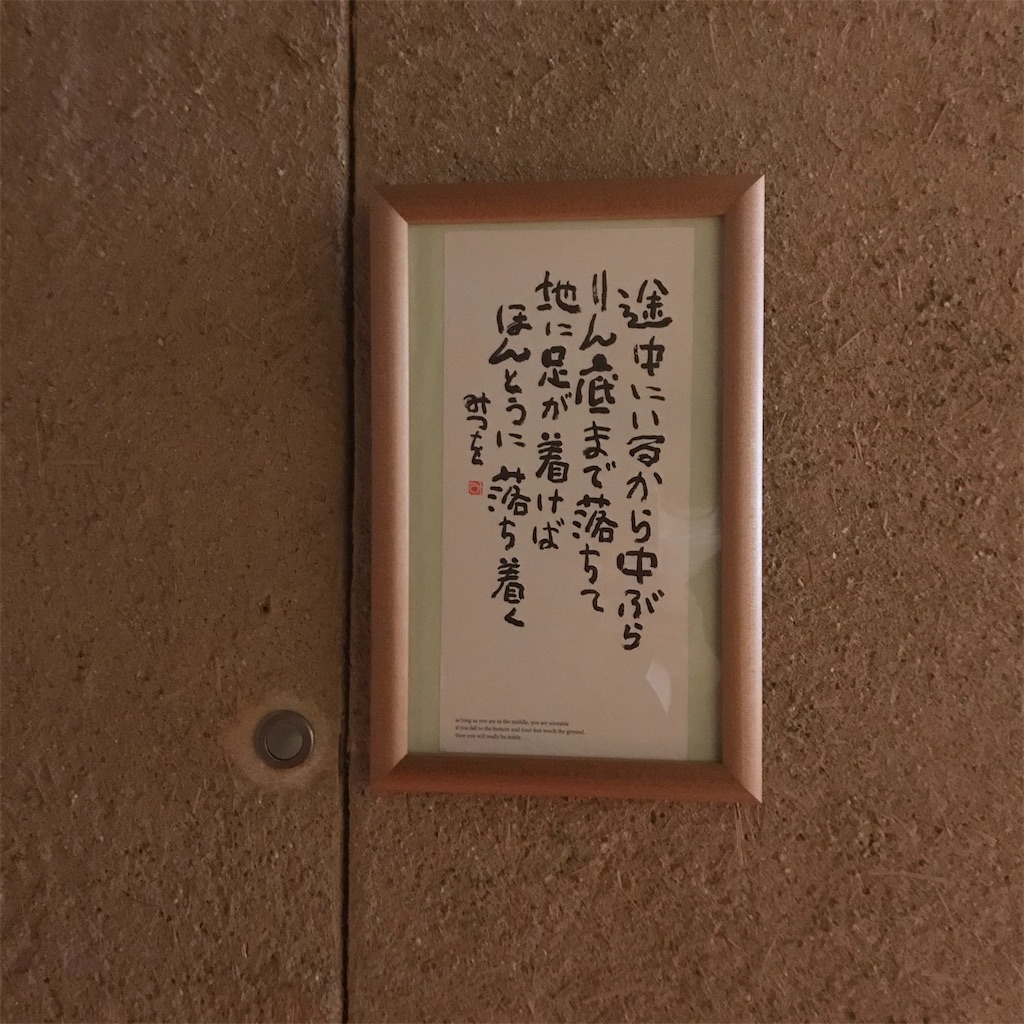 途中にいるから中ぶら
りん底まで落ちて
地に足が着けば
ほんとうに落ち着く
みつを
as long as you are in the middle, you are unstable
if you fall to the bottom and your feet touch the ground
then you will really be stable